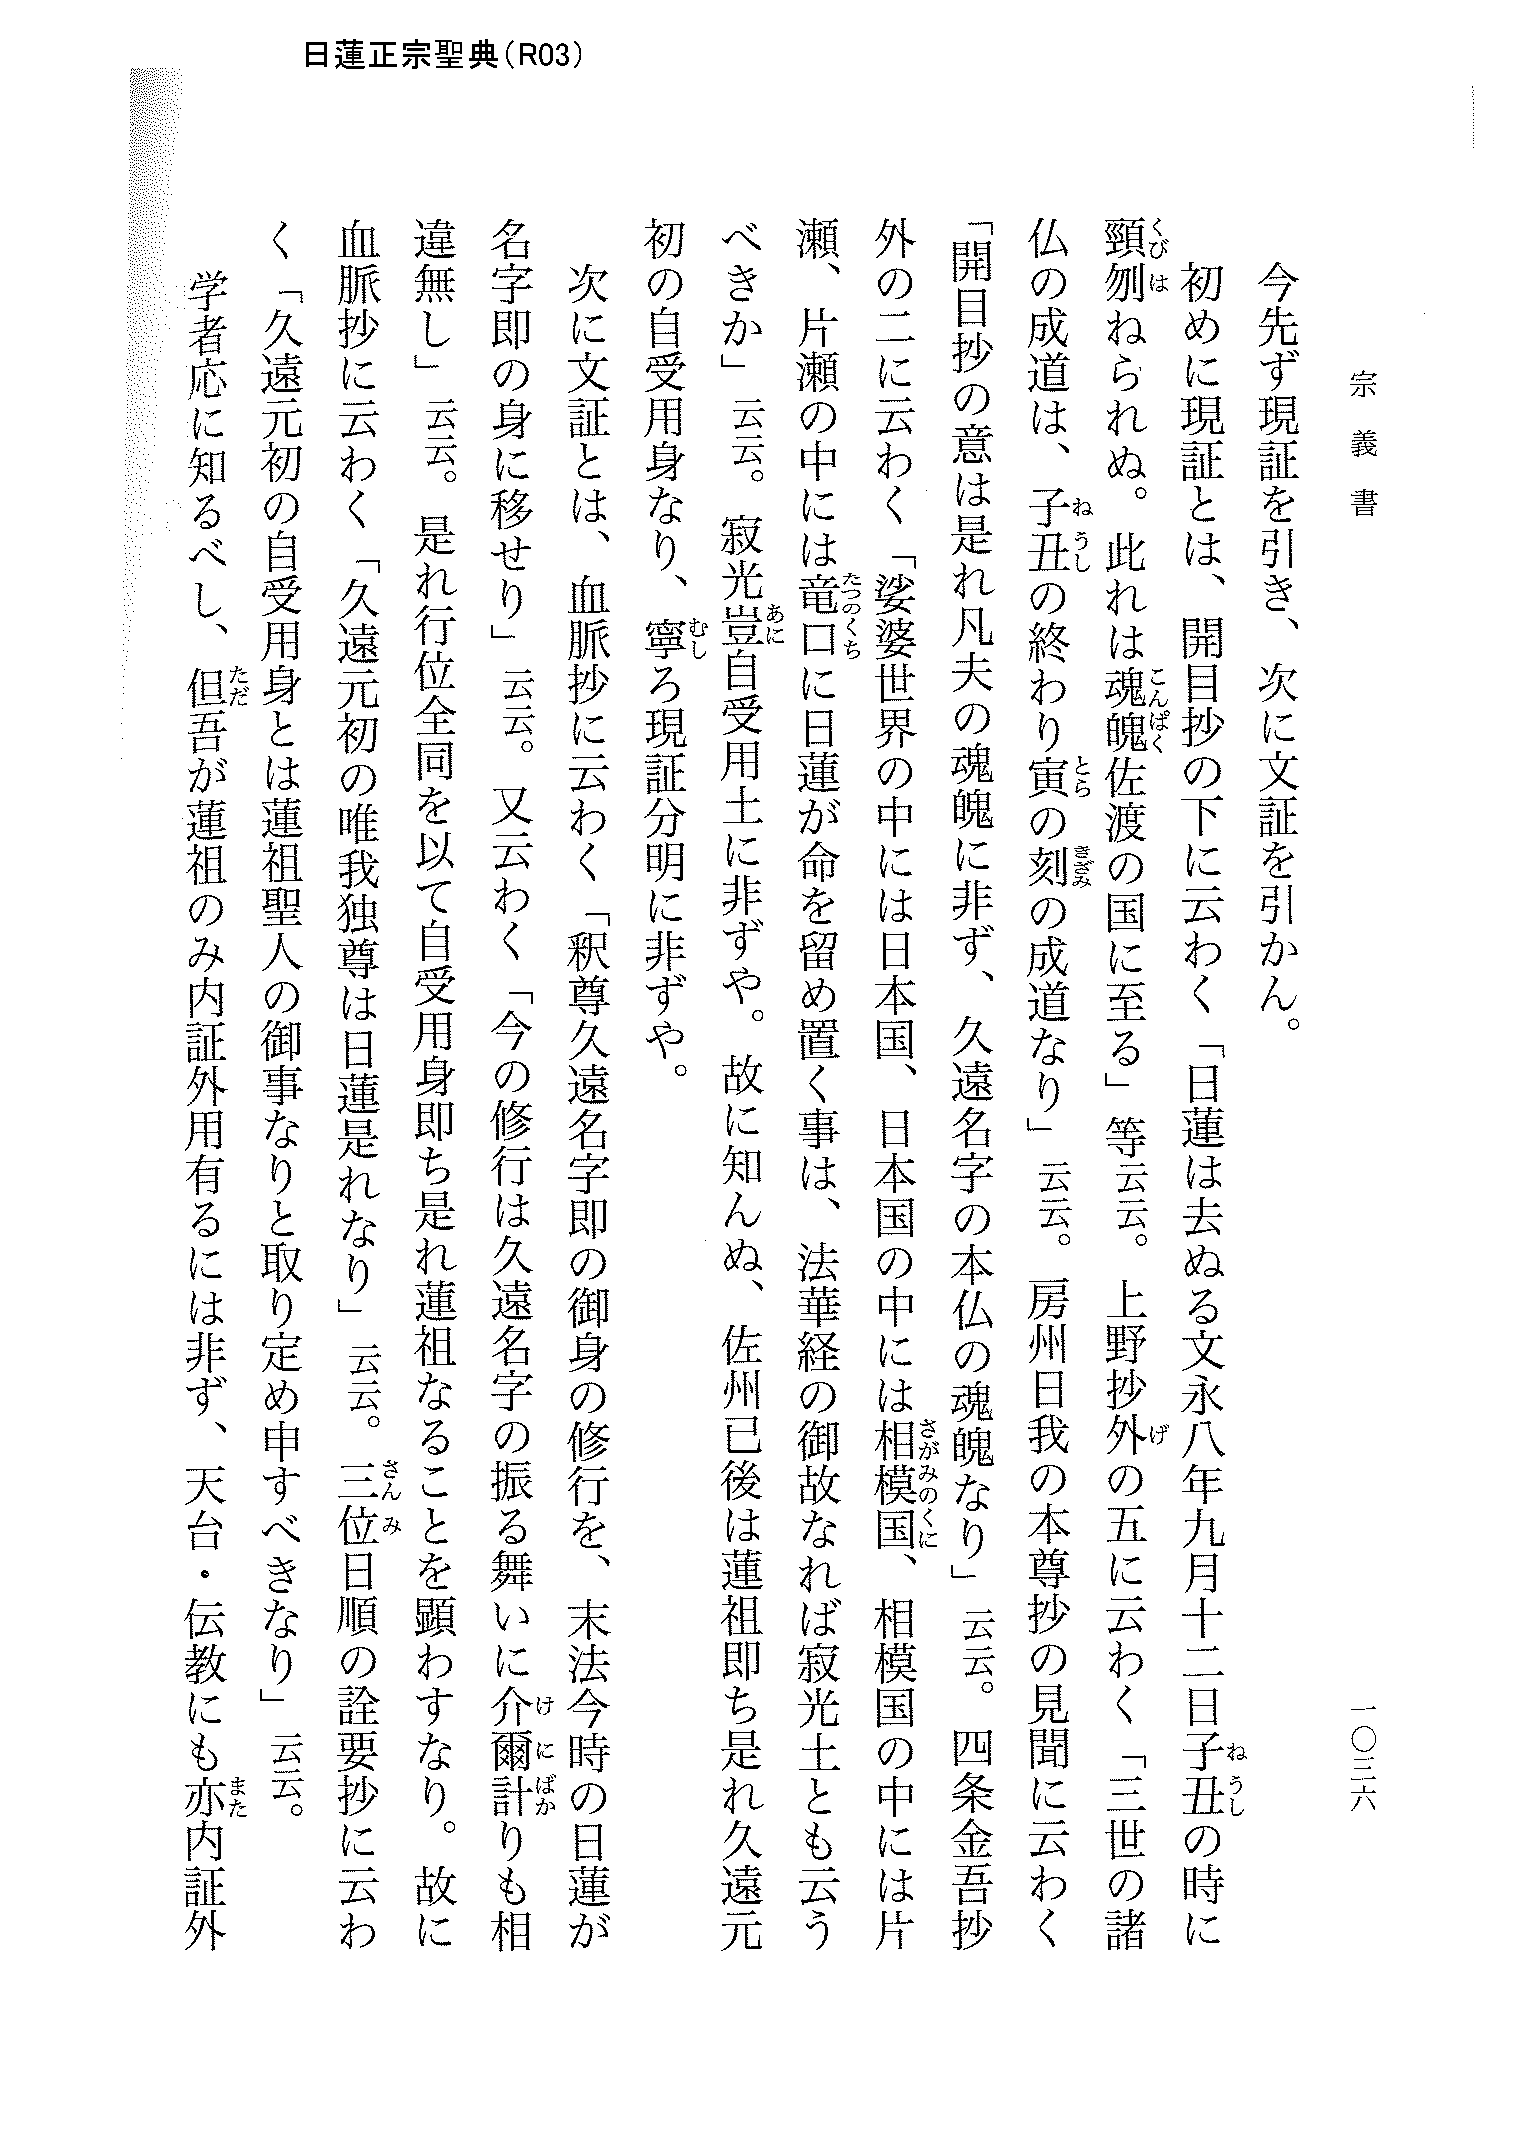 日蓮正宗聖典（R03）
宗義書
一〇三六
今先ず現証を引き、次に文証を引かん。
初めに現証とは、開目抄の下に云わく「日蓮は去ぬる文永八年九月十二日子丑の時に
頸刎ねられぬ。此れは魂魄佐渡の国に至る」等云云。上野抄外の五に云わく「三世の諸
仏の成道は、子丑の終わり寅の刻の成道なり」云云。房州日我の本尊抄の見聞に云わく
「開目抄の意は是れ凡夫の魂魄に非ず、久遠名字の本仏の魂魄なり」云云。四条金吾抄
外の二に云わく「娑婆世界の中には日本国、日本国の中には相模国、相模国の中には片
瀬、片瀬の中には竜口に日蓮が命を留め置く事は、法華経の御故なれば寂光土とも云う
べきか」云云。寂光豈自受用土に非ずや。故に知んぬ、佐州已後は蓮祖即ち是れ久遠元
初の自受用身なり、寧ろ現証分明に非ずや。
次に文証とは、血脈抄に云わく「釈尊久遠名字即の御身の修行を、末法今時の日蓮が
名字即の身に移せり」云云。又云わく「今の修行は久遠名字の振る舞いに介爾計りも相
違無し」云云。是れ行位全同を以て自受用身即ち是れ蓮祖なることを顕わすなり。故に
血脈抄に云わく「久遠元初の唯我独尊は日蓮是れなり」云云。三位日順の詮要抄に云わ
く「久遠元初の自受用身とは蓮祖聖人の御事なりと取り定め申すべきなり」云云。
学者応に知るべし、但吾が蓮祖のみ内証外用有るには非ず、天台・伝教にも亦内証外